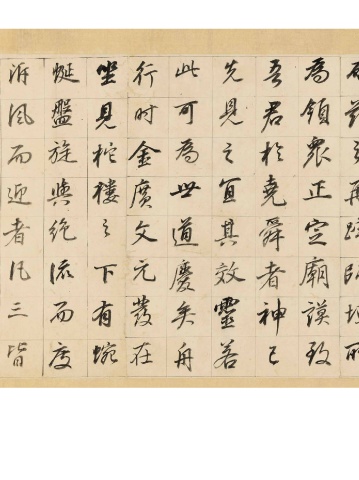 再
為領眾正定廟謨致
吾君於堯舜者神已
先見之宜其效靈若
此可為世道慶矣舟
行时金廣文元發在
坐見柁樓之下有蜿
蜒盤旋與絶流而度
泝風而迎者凡三皆